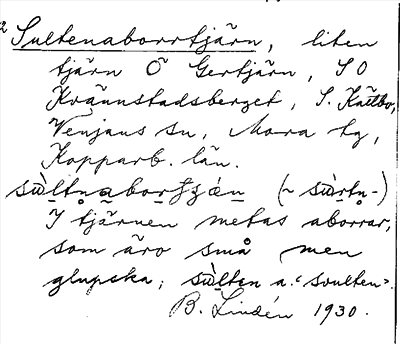 2 Sultenaborrtjärn, liten
tjärn Ö Gertjärn, SO
Krånnstadsberget, S. Kättbo,
Venjans sn, Mora tg,
Kopparb. län.
I tjärnen metas aborrar,
som äro små men
glupska; sùlten a. "svulten".
B. Lindén 1930.